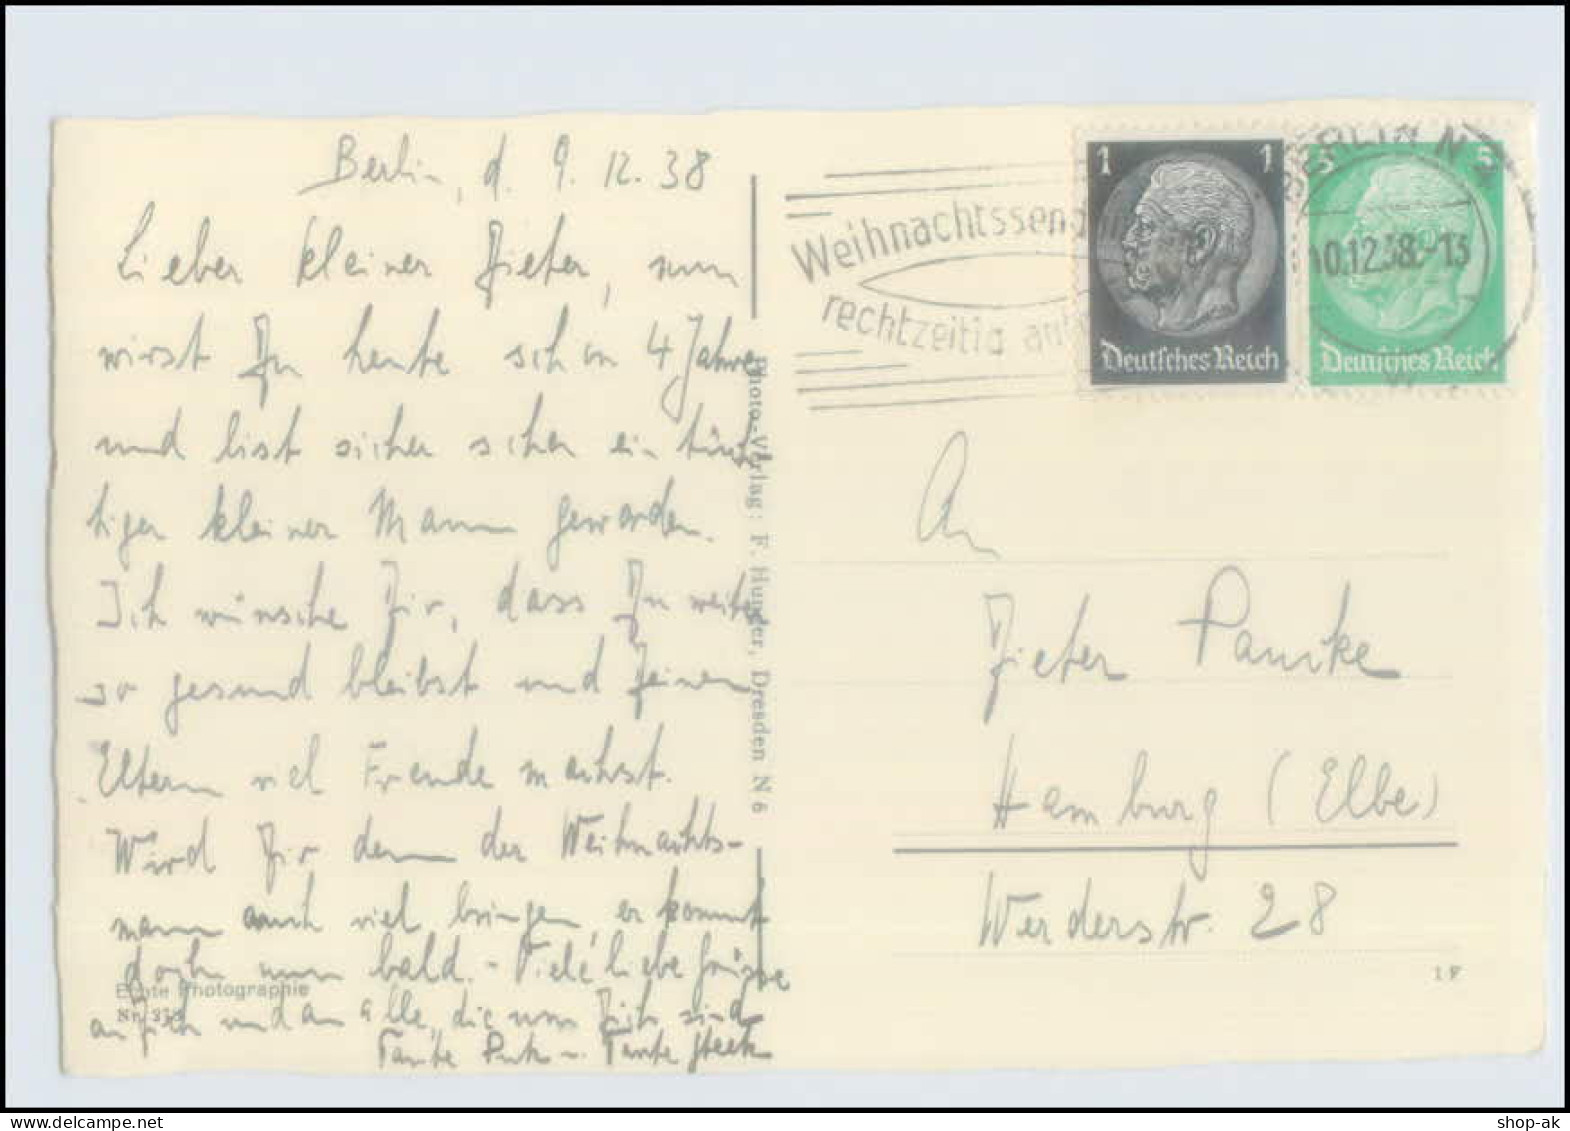 Berlin, d. 9. 12. 38
Lieber kleiner Dieter, nun
wirst Du heute schon 4 Jahre
und bist sicher schon ein tüch-
tiger kleiner Mann geworden.
Ich wünsche Dir, dass Du weiter
so gesund bleibst und Deinen
Eltern viel Freude machst.
Wird Dir denn der Weihnachts-
mann auch viel bringen, er kommt
doch nun bald. - Viele liebe Grüsse
an Dich und an alle, die um Dich sind
Tante u. Tante
Echte Photographie
Photo-Verlag: F. Hunger, Dresden N 6
Weihnachtssendungen
rechtzeitig
BERLIN N
10.12.38.-13
1 1
Deutsches Reich
5 5
Deutsches Reich
An
Dieter Pancke
Hamburg (Elbe)
Werderstr. 28
1 F
shop-ak